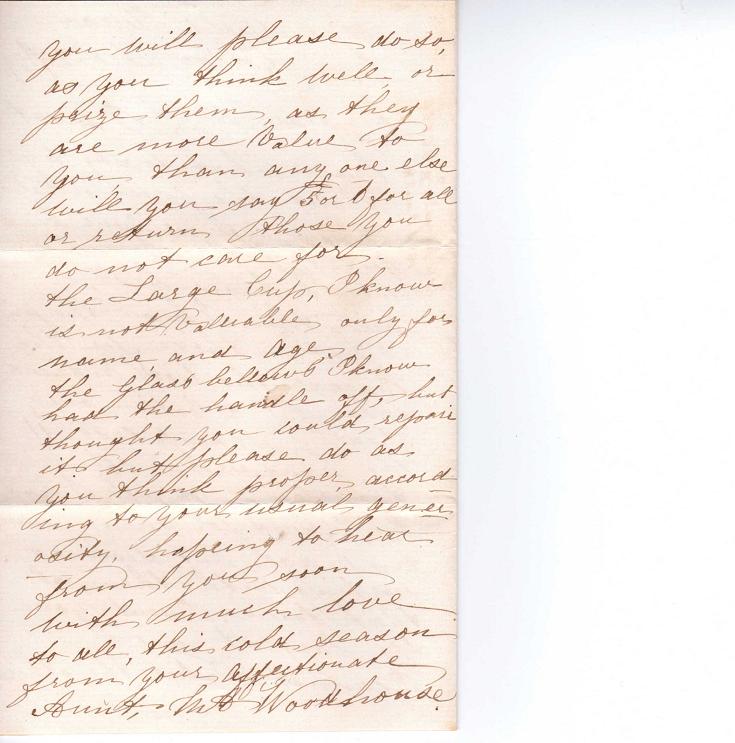 you will please do so,
as you think well, or
prize them, as they
are more Value to
you, than any one else
will you say £5 or 6 for all
or return those you
do not care for.
the Large Cup, I know
is not Valuable only for
name and age
the Glass bellows I know
had the handle off, but
thought you could repair
it but please do as
you think proper, accord
ing to your usual gener
osity, hopeing to hear
from you soon
with much love
to all, this cold season
from your affectionate
Aunt, M A Woodhouse